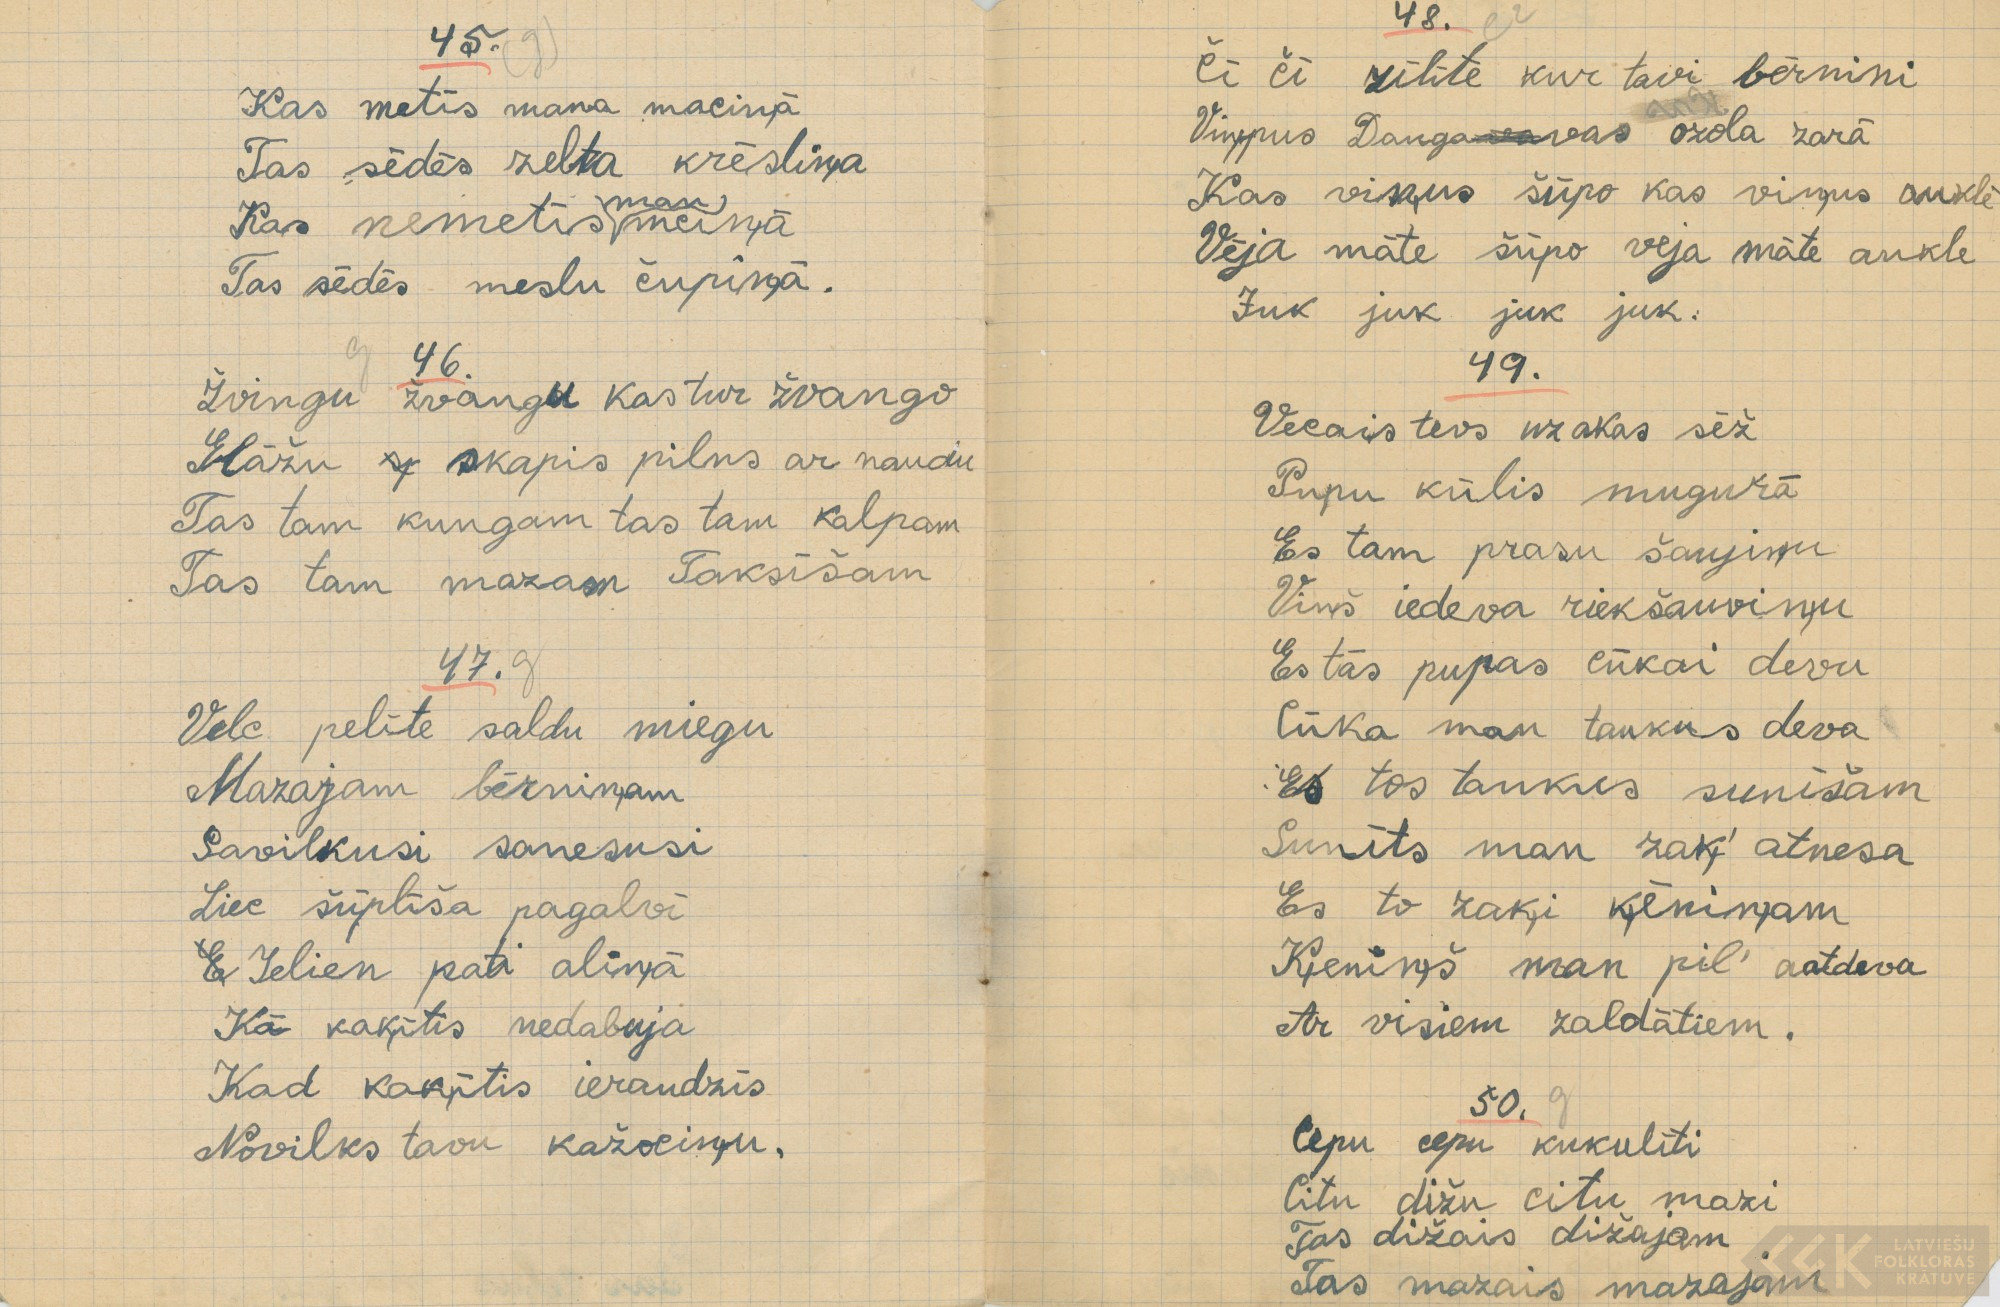 45. (g)
Kas metīs mana maciņā
Tas sēdēs zelta krēsliņa
Kas nemetīs man meiņā
Tas sēdēs meslu čupiņā.
g 46.
Žvingu žvangu kas tur žvango
Glāžu skapis pilns ar naudu
Tas tam kungam tas tam kalpam
Tas tam mazam Taksīšam
47. g
Velc pelīte saldu miegu
Mazajam bērniņam
Savilkusi sanesusi
Liec šūplīša pagalvī
Ielien pati aliņā
Kā kaķītis nedabuja
Kad kaķītis ieraudzīs
Novilks tavu kažociņu.
48.
Čī čī zīlīte kur tavi bērnini
Viņpus Daugavas ozola zarā
Kas viņus šūpo kas viņus auklē
Vēja māte šūpo vēja māte aukle
Juk juk juk juk.
49.
Vecais tevs uz akas sēž
Pupu kūlis mugurā
Es tam prasu šaujiņu
Viņš iedeva riekšauviņu
Es tās pupas cūkai devu
Cūka man taukus deva
Es tos taukus sunīšam
Sunīts man zaķ' atnesa
Es to zaķi ķēniņam
Ķeniņš man pil' aatdeva
Ar visiem zaldātiem.
50. g
Cepu cepu kukulīti
Citu dižu citu mazi
Tas dižais dižajam
Tas mazais mazajam
LATVIEŠU
FOLKLORAS
KRĀTUVE